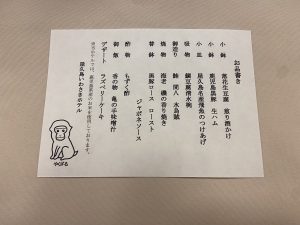 お品書き
小鉢 落花生豆腐 割り醤油かけ
小鉢 鹿児島黒豚 生ハム
小皿 屋久島名産飛魚のつけあげ
吸物 鯛豆腐清水椀
御造り 鮪 間八 水烏賊
焼物 海老 磯の香り焼き
替鉢 黒豚ロース ロースト
ジャポネソース
酢物 もずく酢
御飯 香の物 亀の手味噌汁
デザート ラズベリーケーキ
屋久島いわさきホテル
やくざる